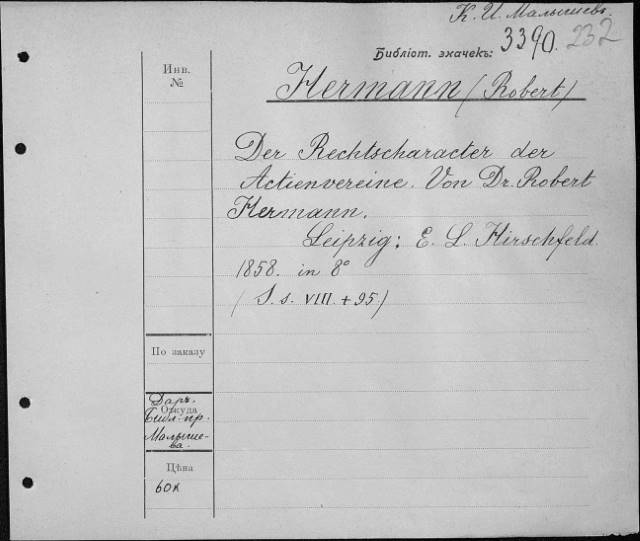 К. И. Малышевъ.
Библіот. значекъ: 3390. 232
Инв.
№
Hermann (Robert)
Der Rechtscharacter der
Actienvereine. Von Dr. Robert
Hermann.
Leipzig: E. L. Hirschfeld.
1858. in 8°
(S. s. VIII. + 95.)
По заказу
Откуда
Даръ.
Библ. пр.
Малыше-
ва.
Цѣна
60 к